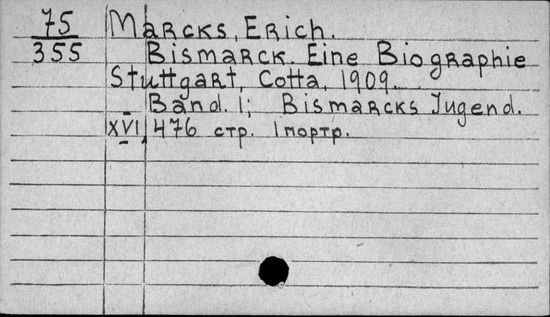 75 Marcks, Erich.
355 Bismarck. Eine Biographie
Stuttgart, Cotta, 1909.
Band. I; Bismarcks Jugend.
XVI, 476 стр. 1 портр.